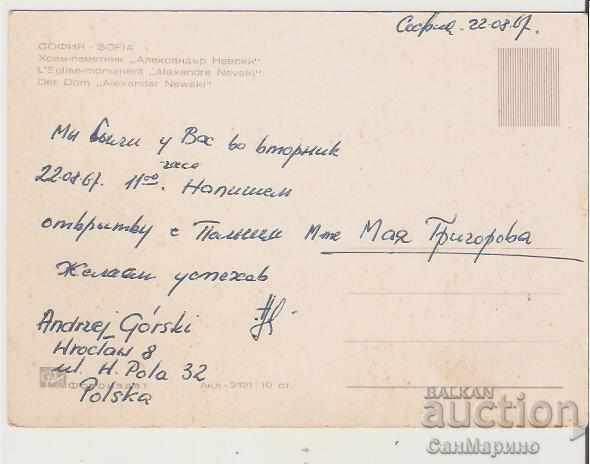 София. 22.08.67.
СОФИЯ - SOFIA
Храм-паметник „Александър Невски"
L'Eglise-monument „Alexandre Nevski"
Der Dom „Alexander Newski"
Мы были у Вас во вторник
22.08.67. 11⁰⁰ часов. Напишем
открытку с Польши М-me Мая Григорова
Желаем успехов
Andrzej Górski
Wrocław 8
ul. W. Pola 32
Polska
Фотоиздат Акл-2121 10 ст.
BALKAN
auction
СанМарино